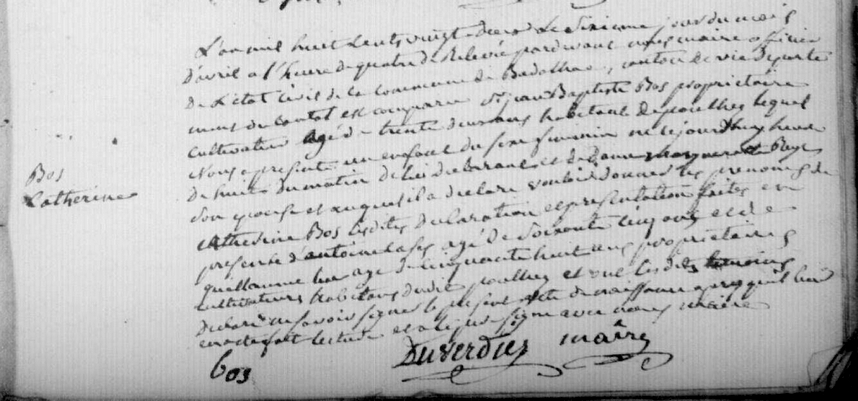 L'an mil huit cents vingt deux le sixieme jour du mois
d'avril a l'heure de quatre de Relevée pardevant nous maire officier
De L'etat civil de la commune de Badalhac, canton de vic departe
ment du cantal est comparu Sr jean Baptiste Bos proprietaire
cultivateur agé de trente deux ans habitant de poulhes lequel
Nous a presenté un enfant du sexe feminin né cejourd'huy heure
de huit du matin de lui declarant et de Dame marguerite
Son epouse et auquel il a declaré vouloir donner les prenoms de
Catherine Bos lesdites declaration et presentation faites en
presence d'antoine agé de soixante ans et de
guillaume agé de cinquante huit ans proprietaires
cultivateurs habitans dudit poulhes et ont lesdits temoins
Declaré ne savoir signer le present acte de naissance apres qu'il leur
en a été fait lecture et a le signé avec nous maire
Bos
Catherine
bos
Duverdier maire